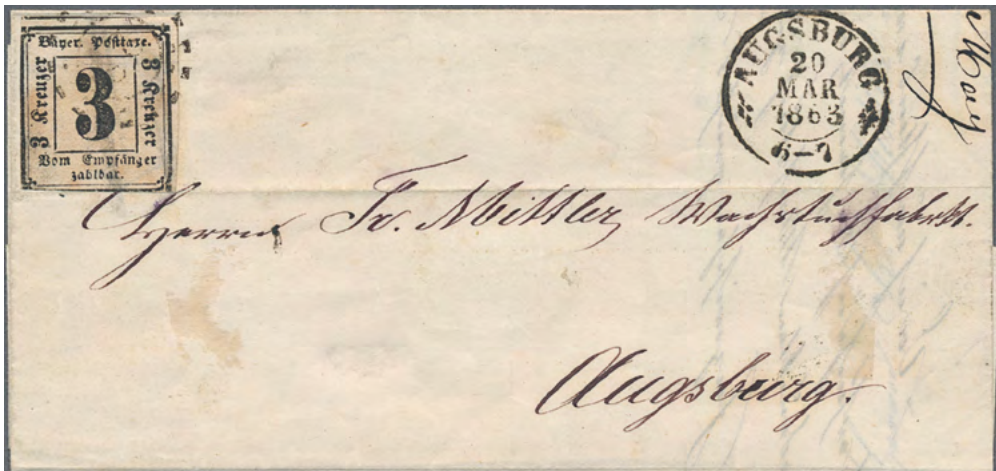 Bayer. Posttaxe.
3 Kreuzer
3
3 Kreuzer
Vom Empfänger
zahlbar.
AUGSBURG
20
MAR
1863
6-7
May
Herrn Fr. Mittler Wachstuchfabrkt.
Augsburg.